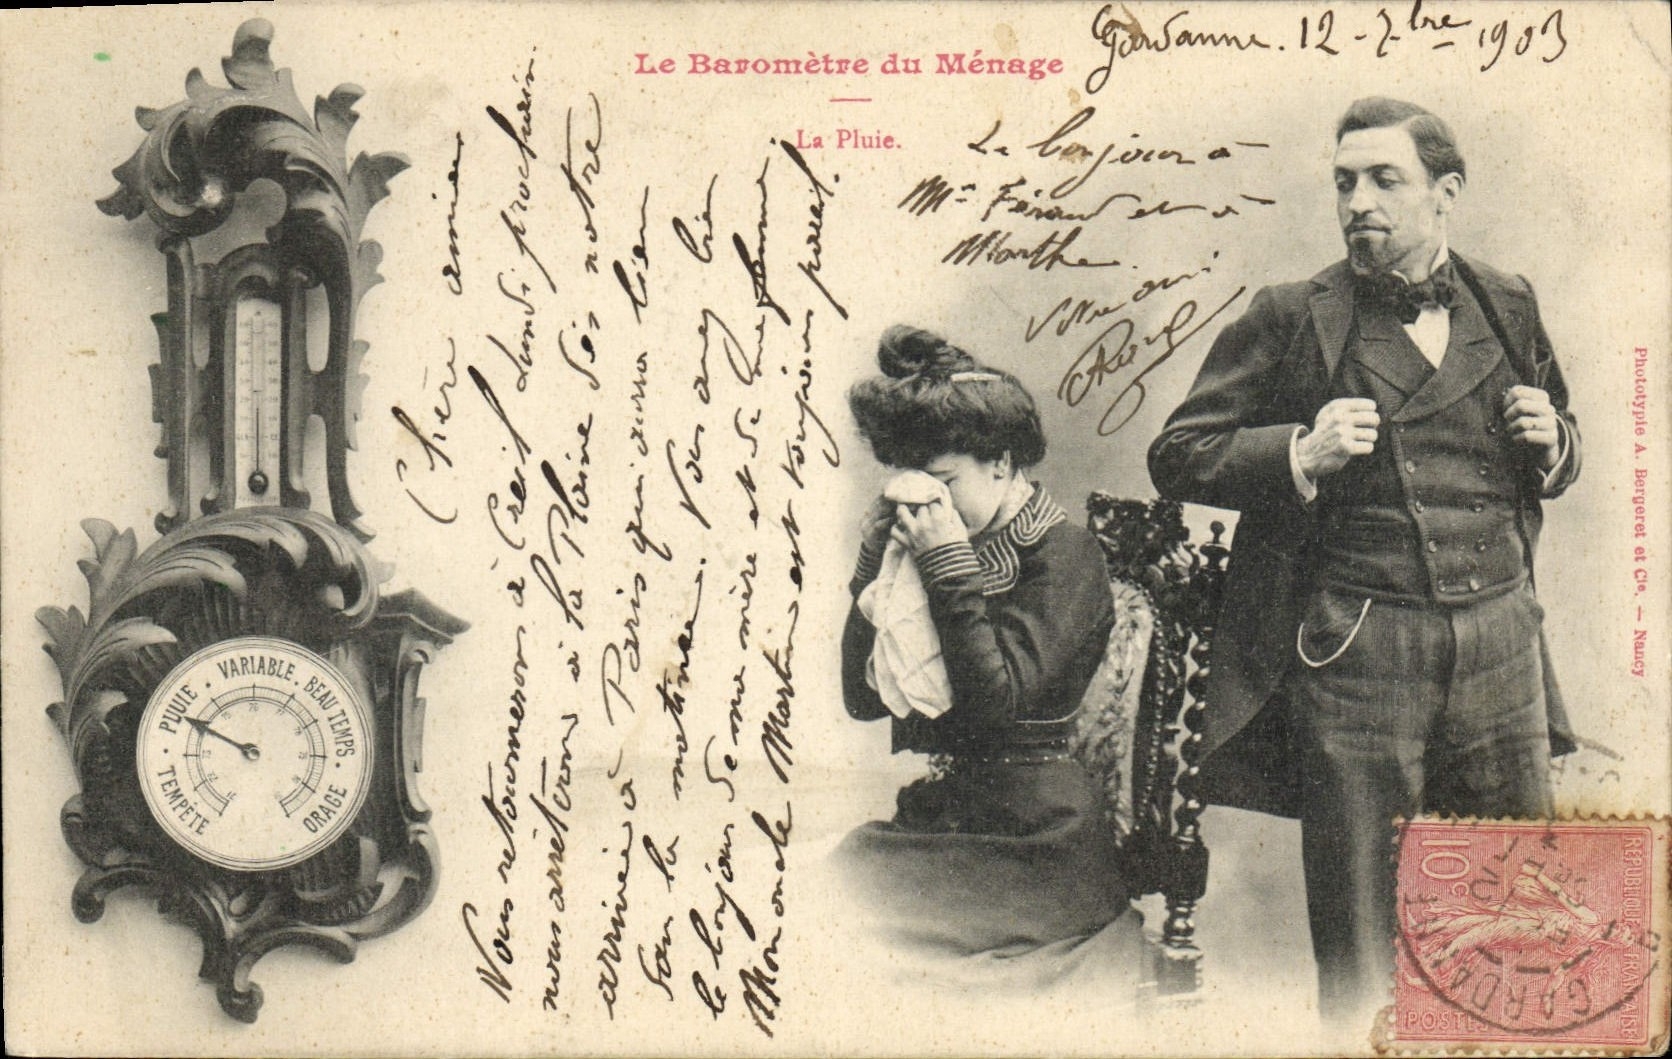 Gardanne. 12-7bre 1903
Le Baromètre du Ménage
La Pluie.
Chère amie
Nous retournerons à Creil Lundi prochain
nous arrêterons à la Plaine dès notre
arrivée à Paris qui aura lieu
dans la matinée. Vous avez bien
le bonjour de ma mère et de ma femme
Mon oncle Martin est toujours pareil.
Le bonjour à
Mr Féraud et à
Marthe
Votre ami
VARIABLE. BEAU TEMPS.
PLUIE
TEMPÊTE
ORAGE
Phototypie A. Bergeret et Cie. — Nancy
10c
RÉPUBLIQUE FRANÇAISE
POSTES
GARDANNE